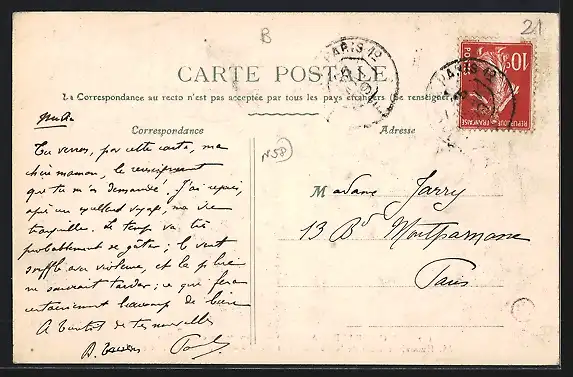 B
21
CARTE POSTALE
La Correspondance au recto n'est pas acceptée par tous les pays étrangers (Se renseigner
Correspondance
Adresse
N58
PARIS
PARIS
10c
POSTES
REPUBLIQUE FRANÇAISE
Tu verras, par cette carte, ma
chère maman, le renseignement
que tu m'as demandé. J'ai repris,
après un excellent voyage, ma vie
tranquille. Le temps va très
probablement se gâter; le vent
souffle avec violence, et la pluie
ne saurait tarder; ce qui fera
certainement beaucoup de bien
A bientôt de tes nouvelles
Paul
Madame Jarry
13 Bd Montparnasse
Paris